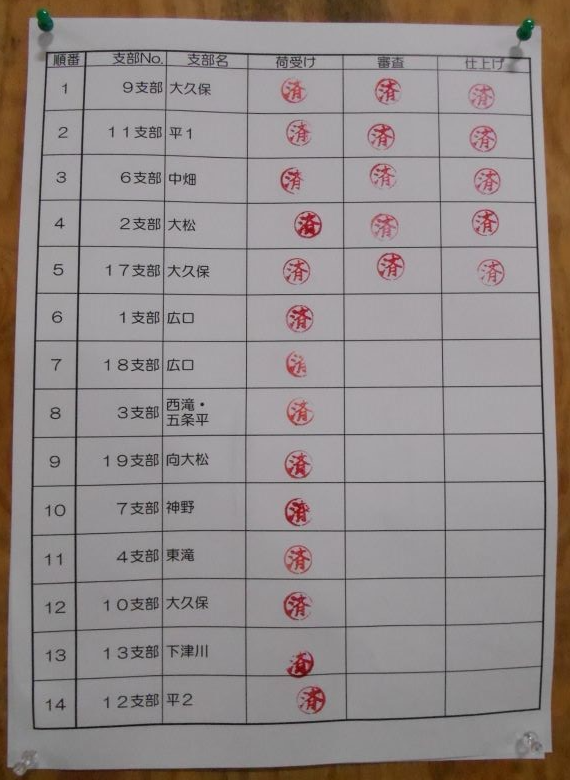 順番 支部No. 支部名 荷受け 審査 仕上げ
1 9支部 大久保 済 済 済
2 11支部 平1 済 済 済
3 6支部 中畑 済 済 済
4 2支部 大松 済 済 済
5 17支部 大久保 済 済 済
6 1支部 広口 済
7 18支部 広口 済
8 3支部 西滝・
五条平 済
9 19支部 向大松 済
10 7支部 神野 済
11 4支部 東滝 済
12 10支部 大久保 済
13 13支部 下津川 済
14 12支部 平2 済